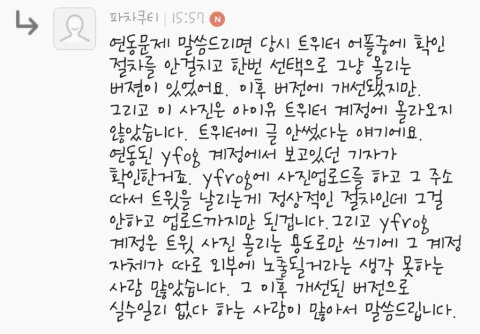 파차쿠티 | 15:57 N
연동문제 말씀드리면 당시 트위터 어플중에 확인
절차를 안걸치고 한번 선택으로 그냥 올리는
버젼이 있었어요. 이후 버전에 개선됐지만.
그리고 이 사진은 아이유 트위터 계정에 올라오지
않았습니다. 트위터에 글 안썼다는 얘기에요.
연동된 yfog 계정에서 보고있던 기자가
확인한거죠. yfrog에 사진업로드를 하고 그 주소
따서 트윗을 날리는게 정상적인 절차인데 그걸
안하고 업로드까지만 된겁니다.그리고 yfrog
계정은 트윗 사진 올리는 용도로만 쓰기에 그 계정
자체가 따로 외부에 노출될거라는 생각 못하는
사람 많았습니다. 그 이후 개선된 버전으로
실수일리 없다 하는 사람이 많아서 말씀드립니다.